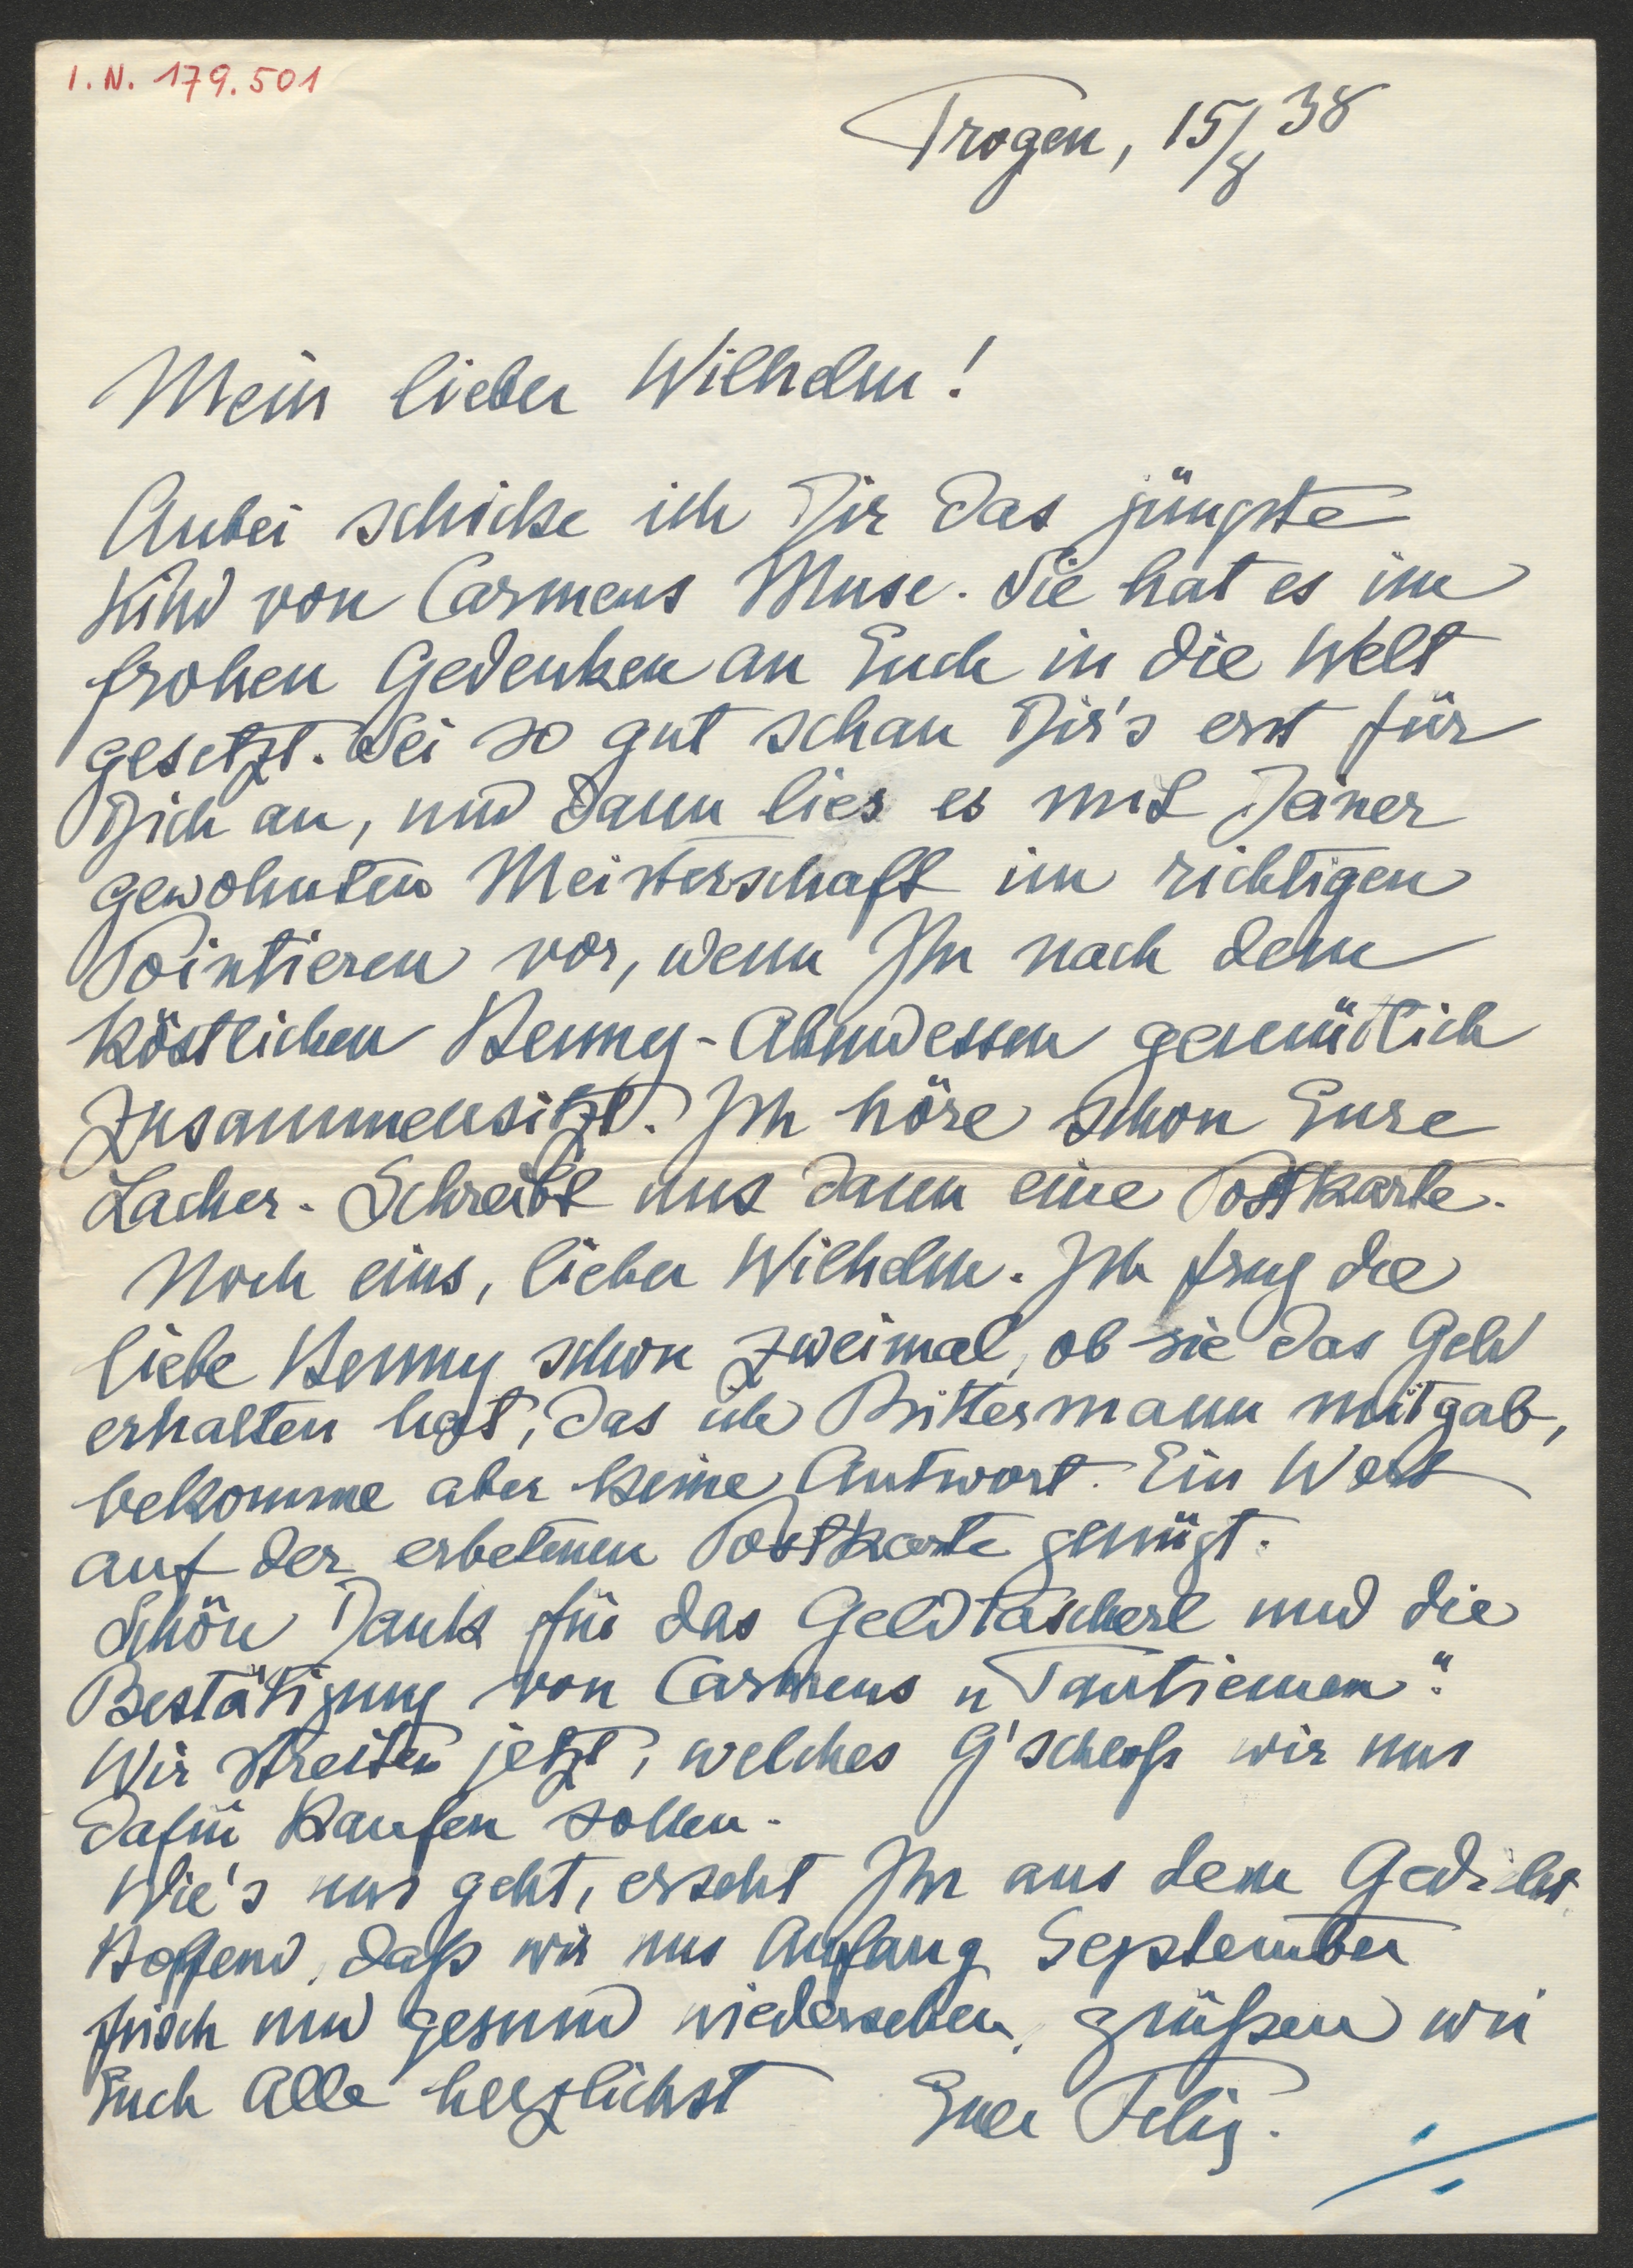 I.N. 179.501
Trogen, 15/8 38
Mein lieber Wilhelm!
Anbei schicke ich Dir das jüngste
Kind von Carmens Muse. Sie hat es im
frohen Gedenken an Euch in die Welt
gesetzt. Sei so gut schau Dir's erst für
Dich an, und dann lies es mit Deiner
gewohnten Meisterschaft im richtigen
Pointieren vor, wenn Ihr nach dem
köstlichen Henny-Abendessen gemütlich
zusammensitzt. Ich höre schon Eure
Lacher. Schreibt uns dann eine Postkarte.
Noch eins, lieber Wilhelm. Ich frug die
liebe Henny schon zweimal, ob sie das Geld
erhalten hat, das ich Bittermann mitgab,
bekomme aber keine Antwort. Ein Wort
auf der erbetenen Postkarte genügt.
Schön Dank für das Geldtascherl und die
Bestätigung von Carmens „Tantiemen".
Wir streiten jetzt, welches G'schloß wir uns
dafür kaufen sollen.
Wie's uns geht, erseht Ihr aus dem Gedicht.
Hoffend, daß wir uns Anfang September
frisch und gesund wiedersehen, grüßen wir
Euch Alle herzlichst Euer Felix.